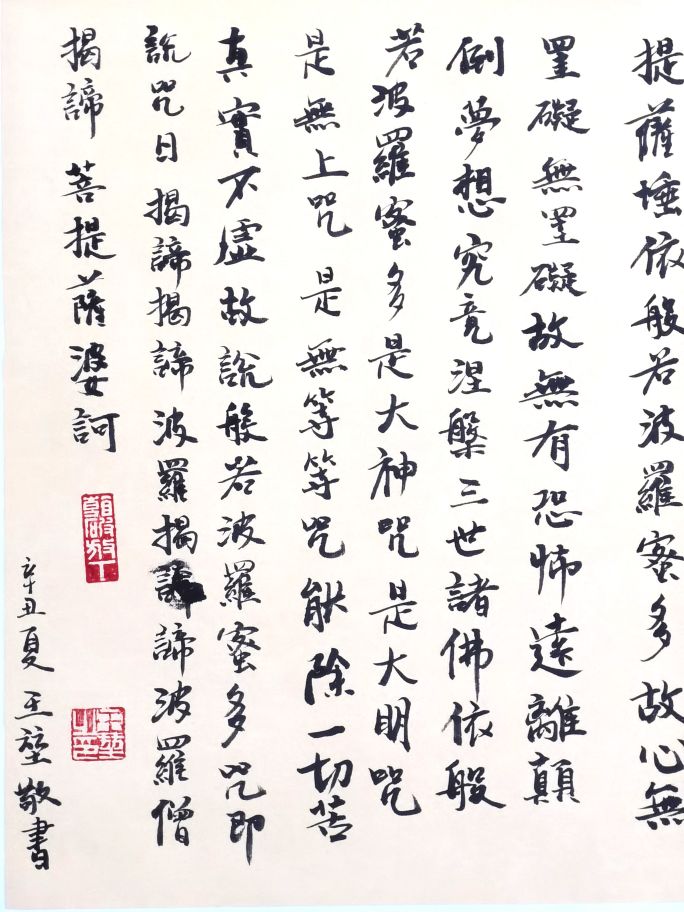 提薩埵依般若波羅蜜多故心無
罣礙無罣礙故無有恐怖遠離顛
倒夢想究竟涅槃三世諸佛依般
若波羅蜜多是大神咒是大明咒
是無上咒是無等等咒能除一切苦
真實不虛故說般若波羅蜜多咒即
說咒曰揭諦揭諦波羅揭諦波羅僧
揭諦菩提薩婆訶
辛丑夏王敬書